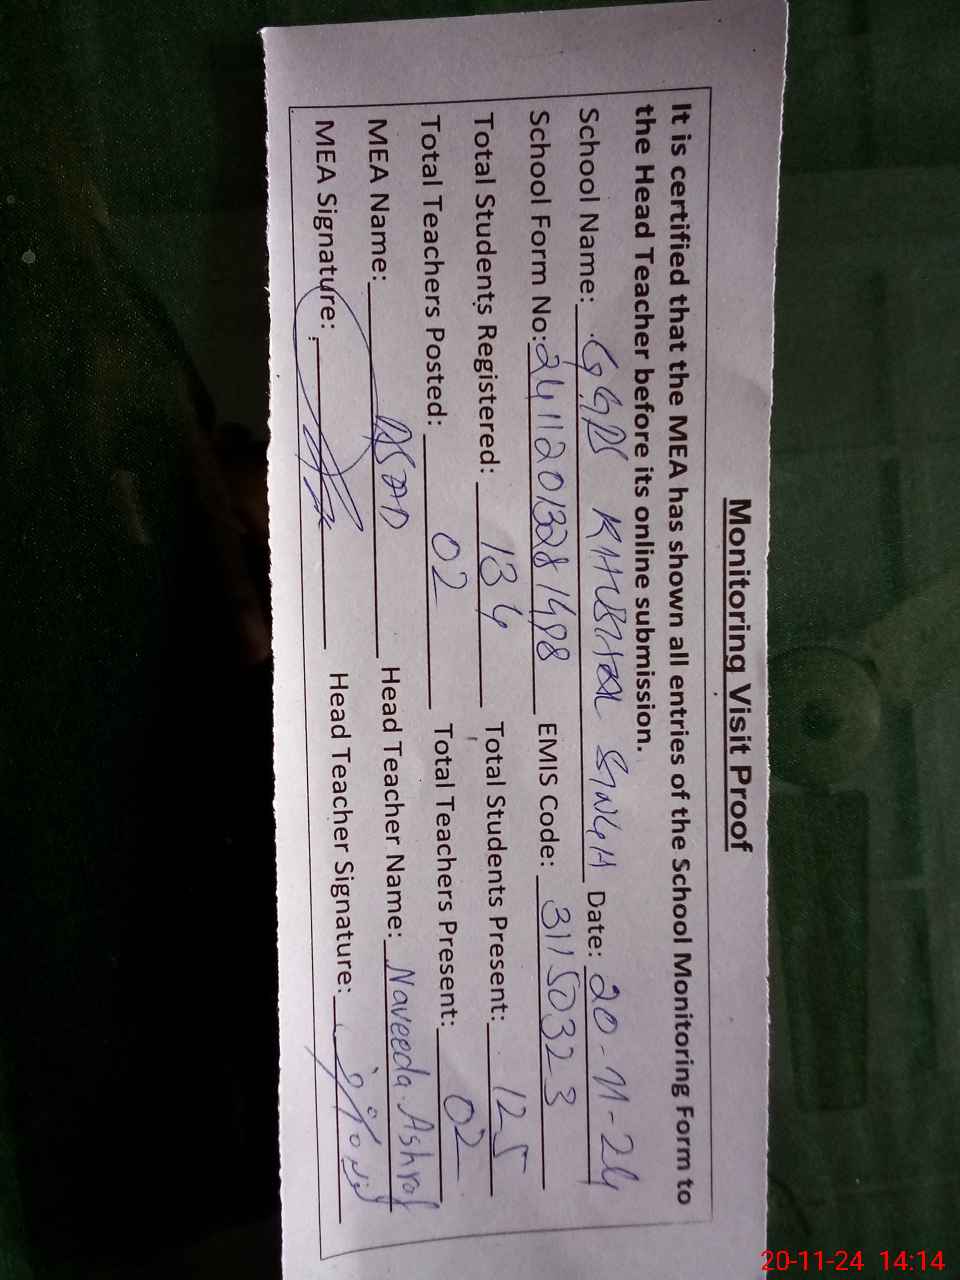 Monitoring Visit Proof
It is certified that the MEA has shown all entries of the School Monitoring Form to
the Head Teacher before its online submission.
School Name: GGPS KHUSHAL SINGH Date: 20-11-24
School Form No: 241120132281498 EMIS Code: 31150323
Total Students Registered: 134 Total Students Present: 125
Total Teachers Posted: 02 Total Teachers Present: 02
MEA Name: ASAD Head Teacher Name: Naveeda Ashraf
MEA Signature: Head Teacher Signature:
20-11-24 14:14